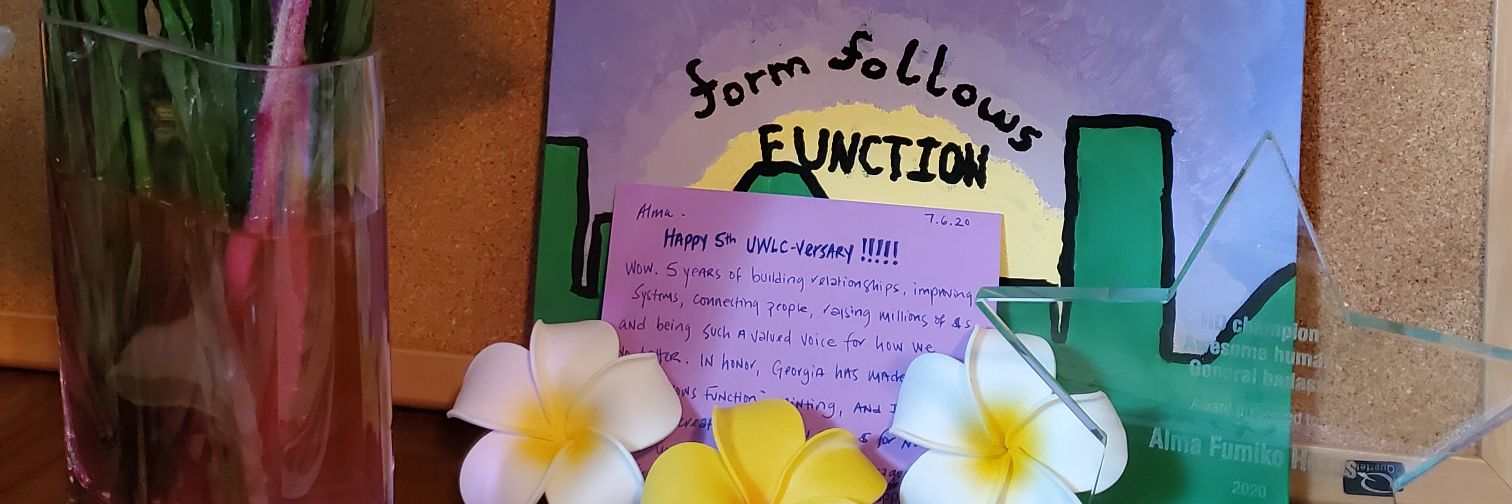 form follows
FUNCTION
Alma.
7.6.20
HAPPY 5th UWLC-versary !!!!!
WOW. 5 years of building relationships, improving
systems, connecting people, raising millions of $s
and being such a valued voice for how we
IN honor, Georgia has made
FUNCTION" AND I
for
HD champion
Awesome
General
Award
Alma Fumiko
2020
Quartet